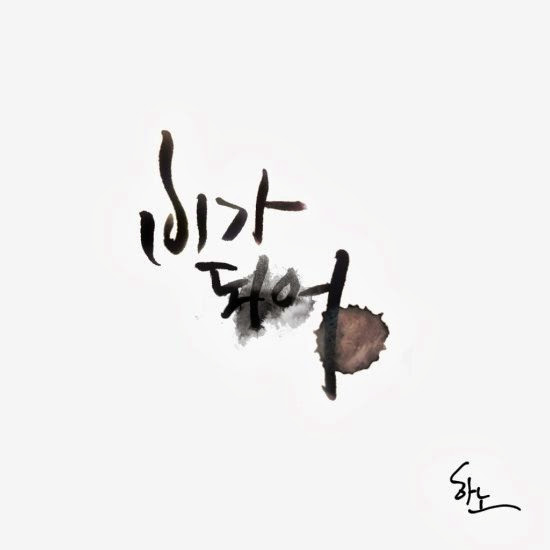 비가
되어
하노